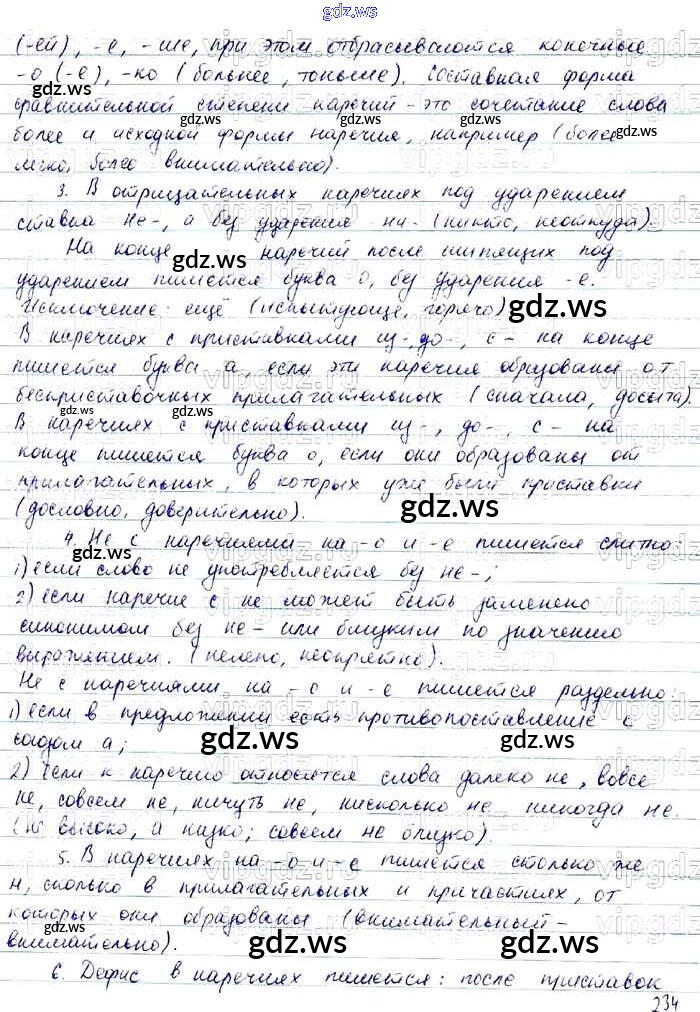 gdz.ws
(-ей), -е, -ше, при этом отбрасываются конечные
-о (-е), -ко (больнее, тоньше). Составная форма
сравнительной степени наречий - это сочетание слова
более и исходной формы наречия, например (более
легко, более внимательно).
3. В отрицательных наречиях под ударением
ставила не-, а без ударения - ни- (никто, неоткуда).
На конце наречий после шипящих под
ударением пишется буква о, без ударения -е.
Исключение: ещё (испытующе, горячо)
В наречиях с приставками из-, до-, с- на конце
пишется буква а, если эти наречия образованы от
бесприставочных прилагательных (сначала, досыта).
В наречиях с приставками из-, до-, с- на
конце пишется буква о, если они образованы от
прилагательных, в которых уже были приставки
(дословно, доверительно).
4. Не с наречиями на -о и -е пишется слитно
1) если слово не употребляется без не-;
2) если наречие с не может быть заменено
синонимом без не- или близким по значению
выражением. (нелепо, неопрятно).
Не с наречиями на -о и -е пишется раздельно:
1) если в предложении есть противопоставление с
союзом а;
2) если к наречию относятся слова далеко не, вовсе
не, совсем не, ничуть не, нисколько не, никогда не.
(не высоко, а низко; совсем не близко).
5. В наречиях на -о и -е пишется столько же
н, сколько в прилагательных и причастиях, от
которых они образованы (внимательный-
внимательно).
6. Дефис в наречиях пишется: после приставок
234